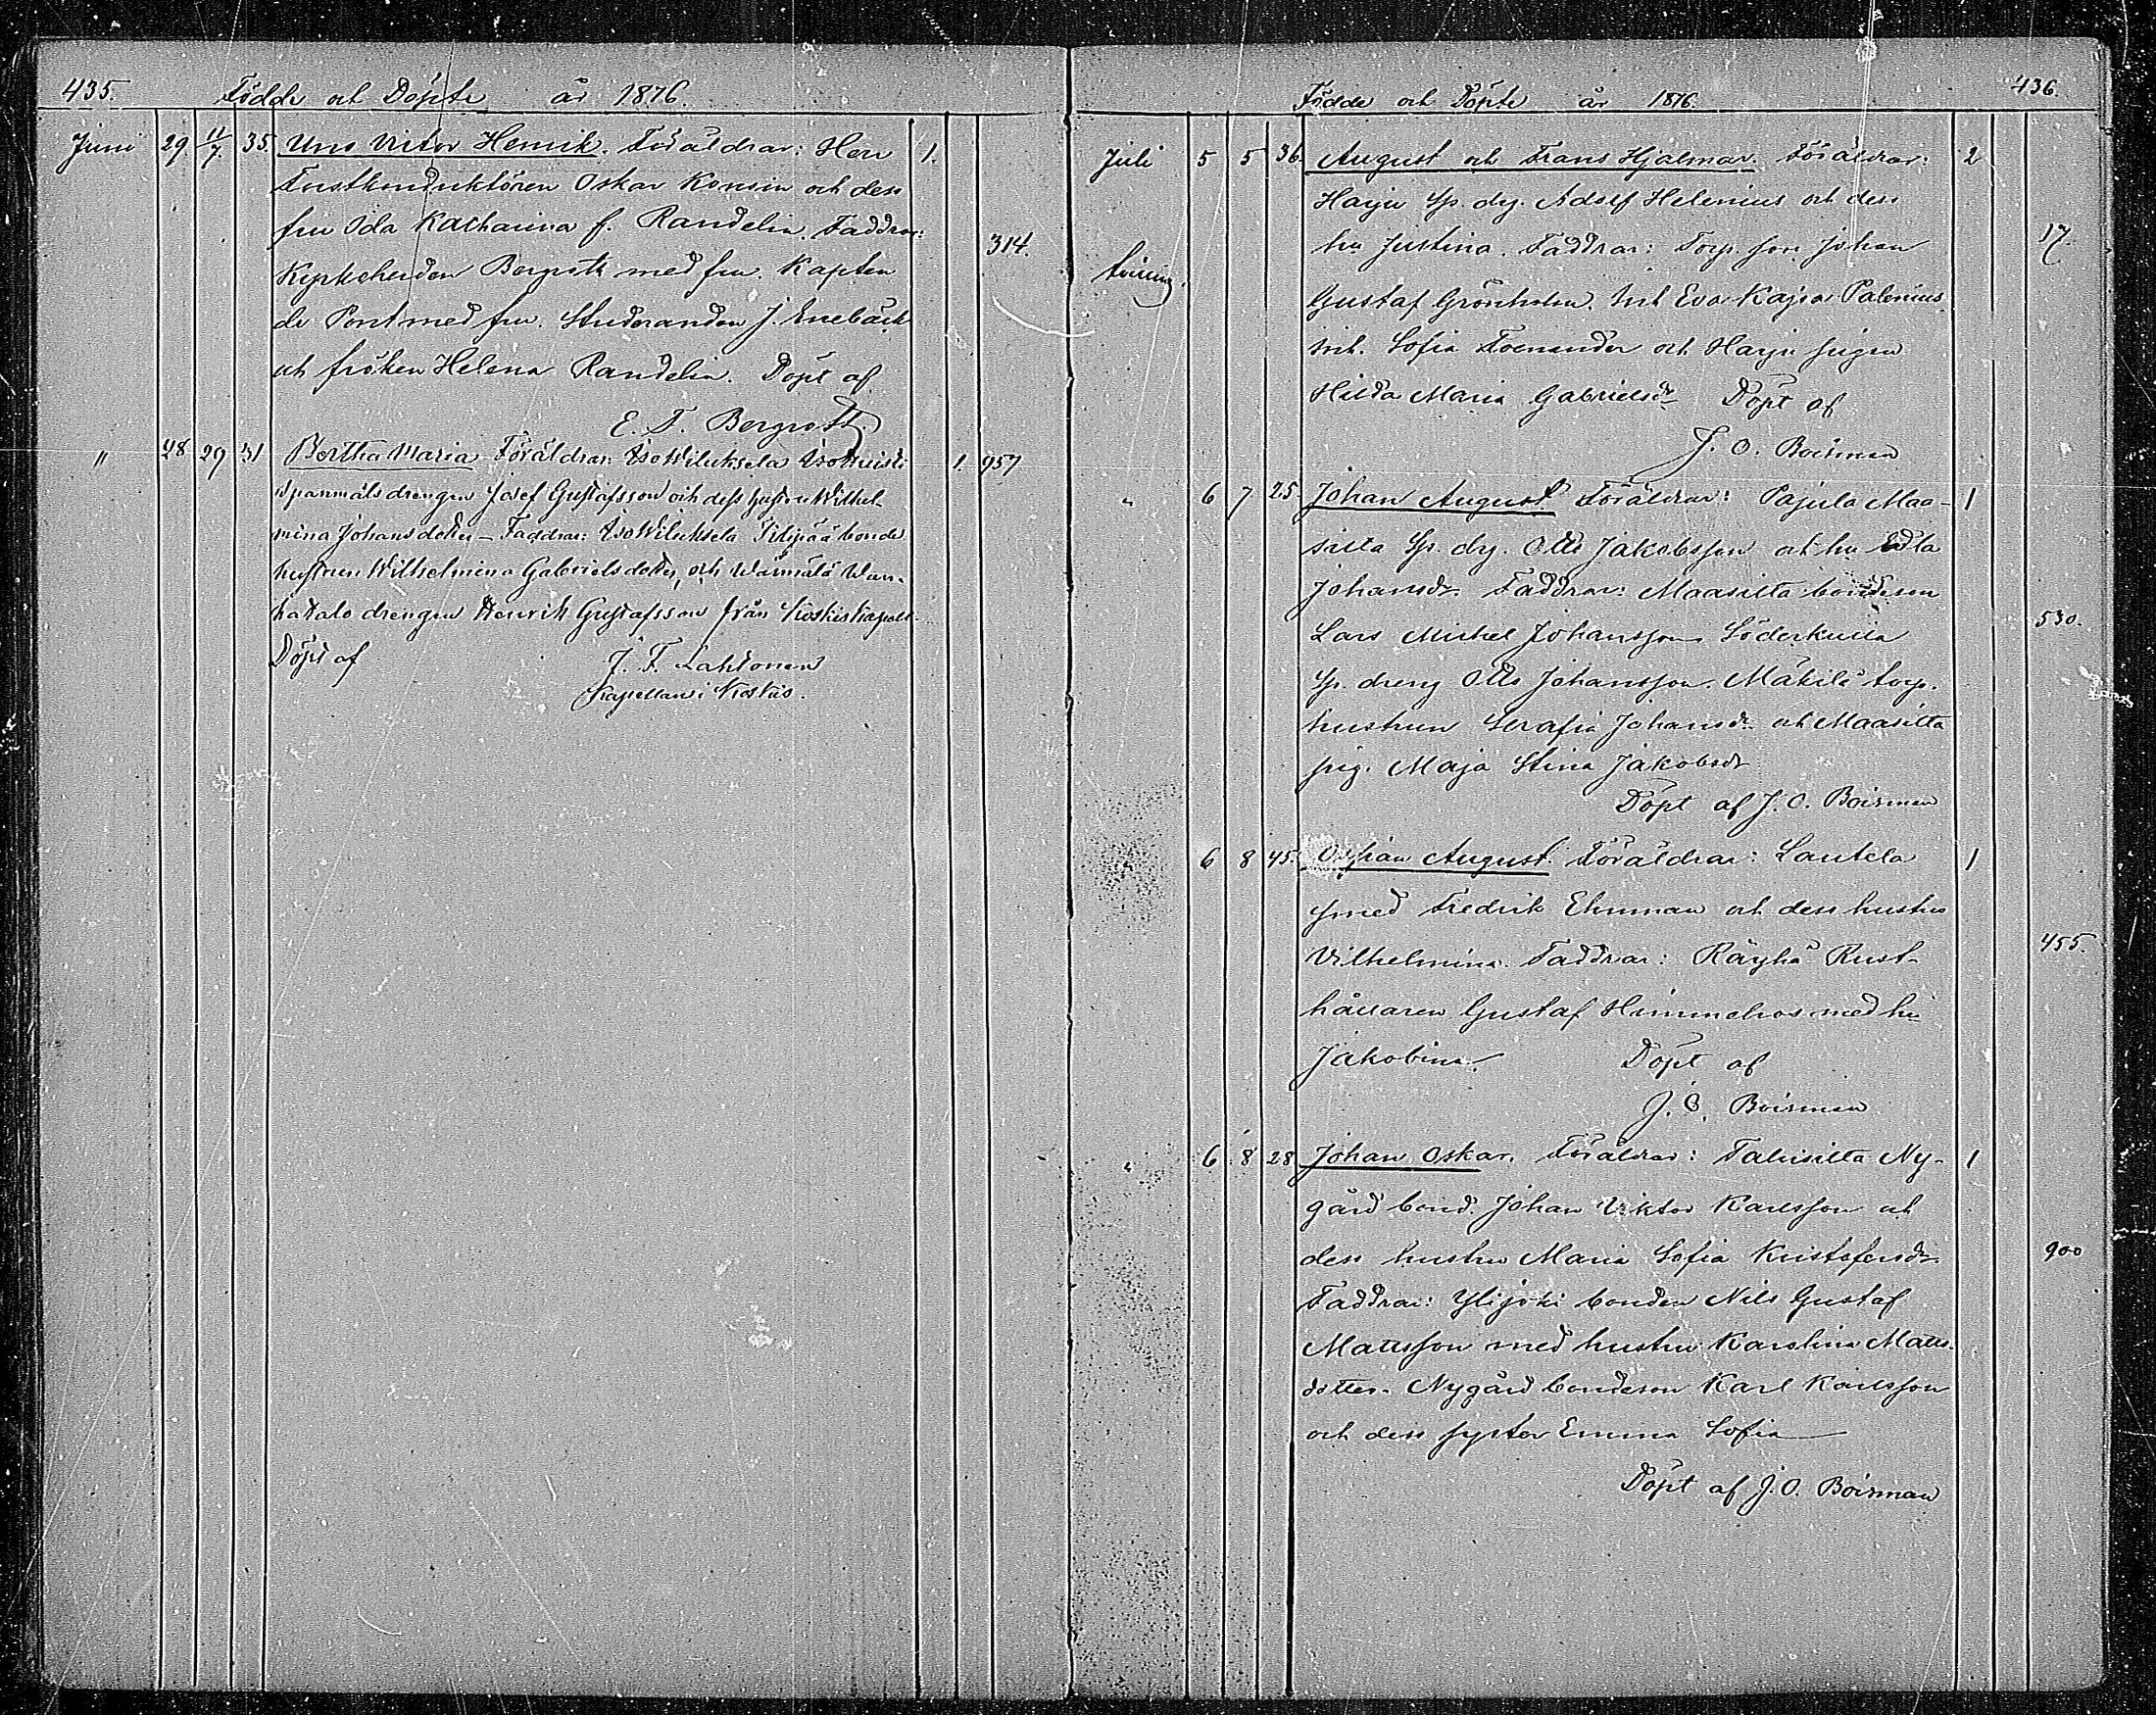 435. Födde och Döpte år 1876.
Juni 29. 11/7. 35. Uno Victor Henrik. Föräldrar: Herr 1.
Forstkonduktören Oskar Konsin och dess
fru Ida Katharina f. Randelin. Faddrar:
314.
Kyrkoherden Bergroth med fru. Kapten
de Pont med fru. Studeranden J. Enebäck
och fröken Helena Randelin. Döpt af
E. F. Bergroth.
" 28 29 31 Bertha Maria Föräldrar: Iso Wiluksela 1. 957
spanmåls drengen Josef Gustafsson och dess hustru Wilhel-
mina Johansdotter – Faddrar: Iso Wiluksela Pilipää bonde
hustrun Wilhelmina Gabrielsdotter, och Wärmälä Wan-
hatalo drengen Henrik Gustafsson från Koskis kapell.
Döpt af J. F. Lahtonen
Kapellan i Koskis.
Födde och Döpte år 1876. 436.
Juli 5 5 36. August och Frans Hjalmar. Föräldrar: 2
Harju sp. drg. Adolf Helenius och dess
hu Justina. Faddrar: Torp. son Johan 17.
tvilling.
Gustaf Grönholm. Inh. Eva Kajsa Palenius
Inh. Sofia Foenander och Harju pigan
Hilda Maria Gabrielsdr Döpt af
J. O. Boisman
" 6 7 25 Johan August. Föräldrar: Pajula Maa- 1
silta Sp. drg. Otto Jakobsson och hu Edla
Johansdr. Faddrar: Maasilta bondeson
530.
Lars Michel Johansson Söderkulla
Sp. dreng Otto Johansson. Mäkilä torp.
hustrun Serafia Johansdr och Maasilta
pig. Maja Stina Jakobsdr
Döpt af J. O. Boisman
" 6 8 45. August. Föräldrar: Lautela 1
smed Fredrik Ehnman och dess hustru
Vilhelmina. Faddrar: Räyhä Rust- 455.
hållaren Gustaf Himmelros med hu
Jakobina. Döpt af
J. O. Boisman
" 6 8 28 Johan Oskar. Föräldrar: Talvisilta Ny- 1
gård bond. Johan Viktor Karlsson och
dess hustru Maria Sofia Kristofersdr 900
Faddrar: Ylijoki bonden Nils Gustaf
Mattsson med hustru Karolina Matts-
dotter. Nygård bondeson Karl Karlsson
och dess syster Emma Sofia
Döpt af J. O. Boisman